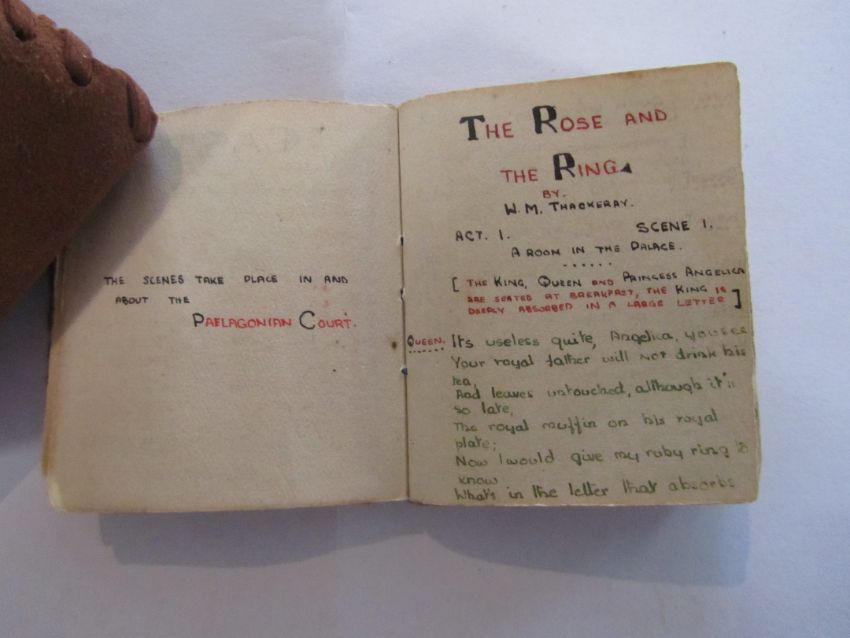 THE SCENES TAKE PLACE IN AND
ABOUT THE
PAFLAGONIAN COURT.
THE ROSE AND
THE RING
BY.
W. M. THACKERAY.
ACT. 1. SCENE 1.
A ROOM IN THE PALACE.
[ THE KING, QUEEN AND PRINCESS ANGELICA
ARE SEATED AT BREAKFAST, THE KING IS
DEEPLY ABSORBED IN A LARGE LETTER ]
QUEEN. Its useless quite, Angelica, you see
Your royal father will not drink his
tea,
And leaves untouched, although it's
so late,
The royal muffin on his royal
plate;
Now I would give my ruby ring to
know
What's in the letter that absorbs